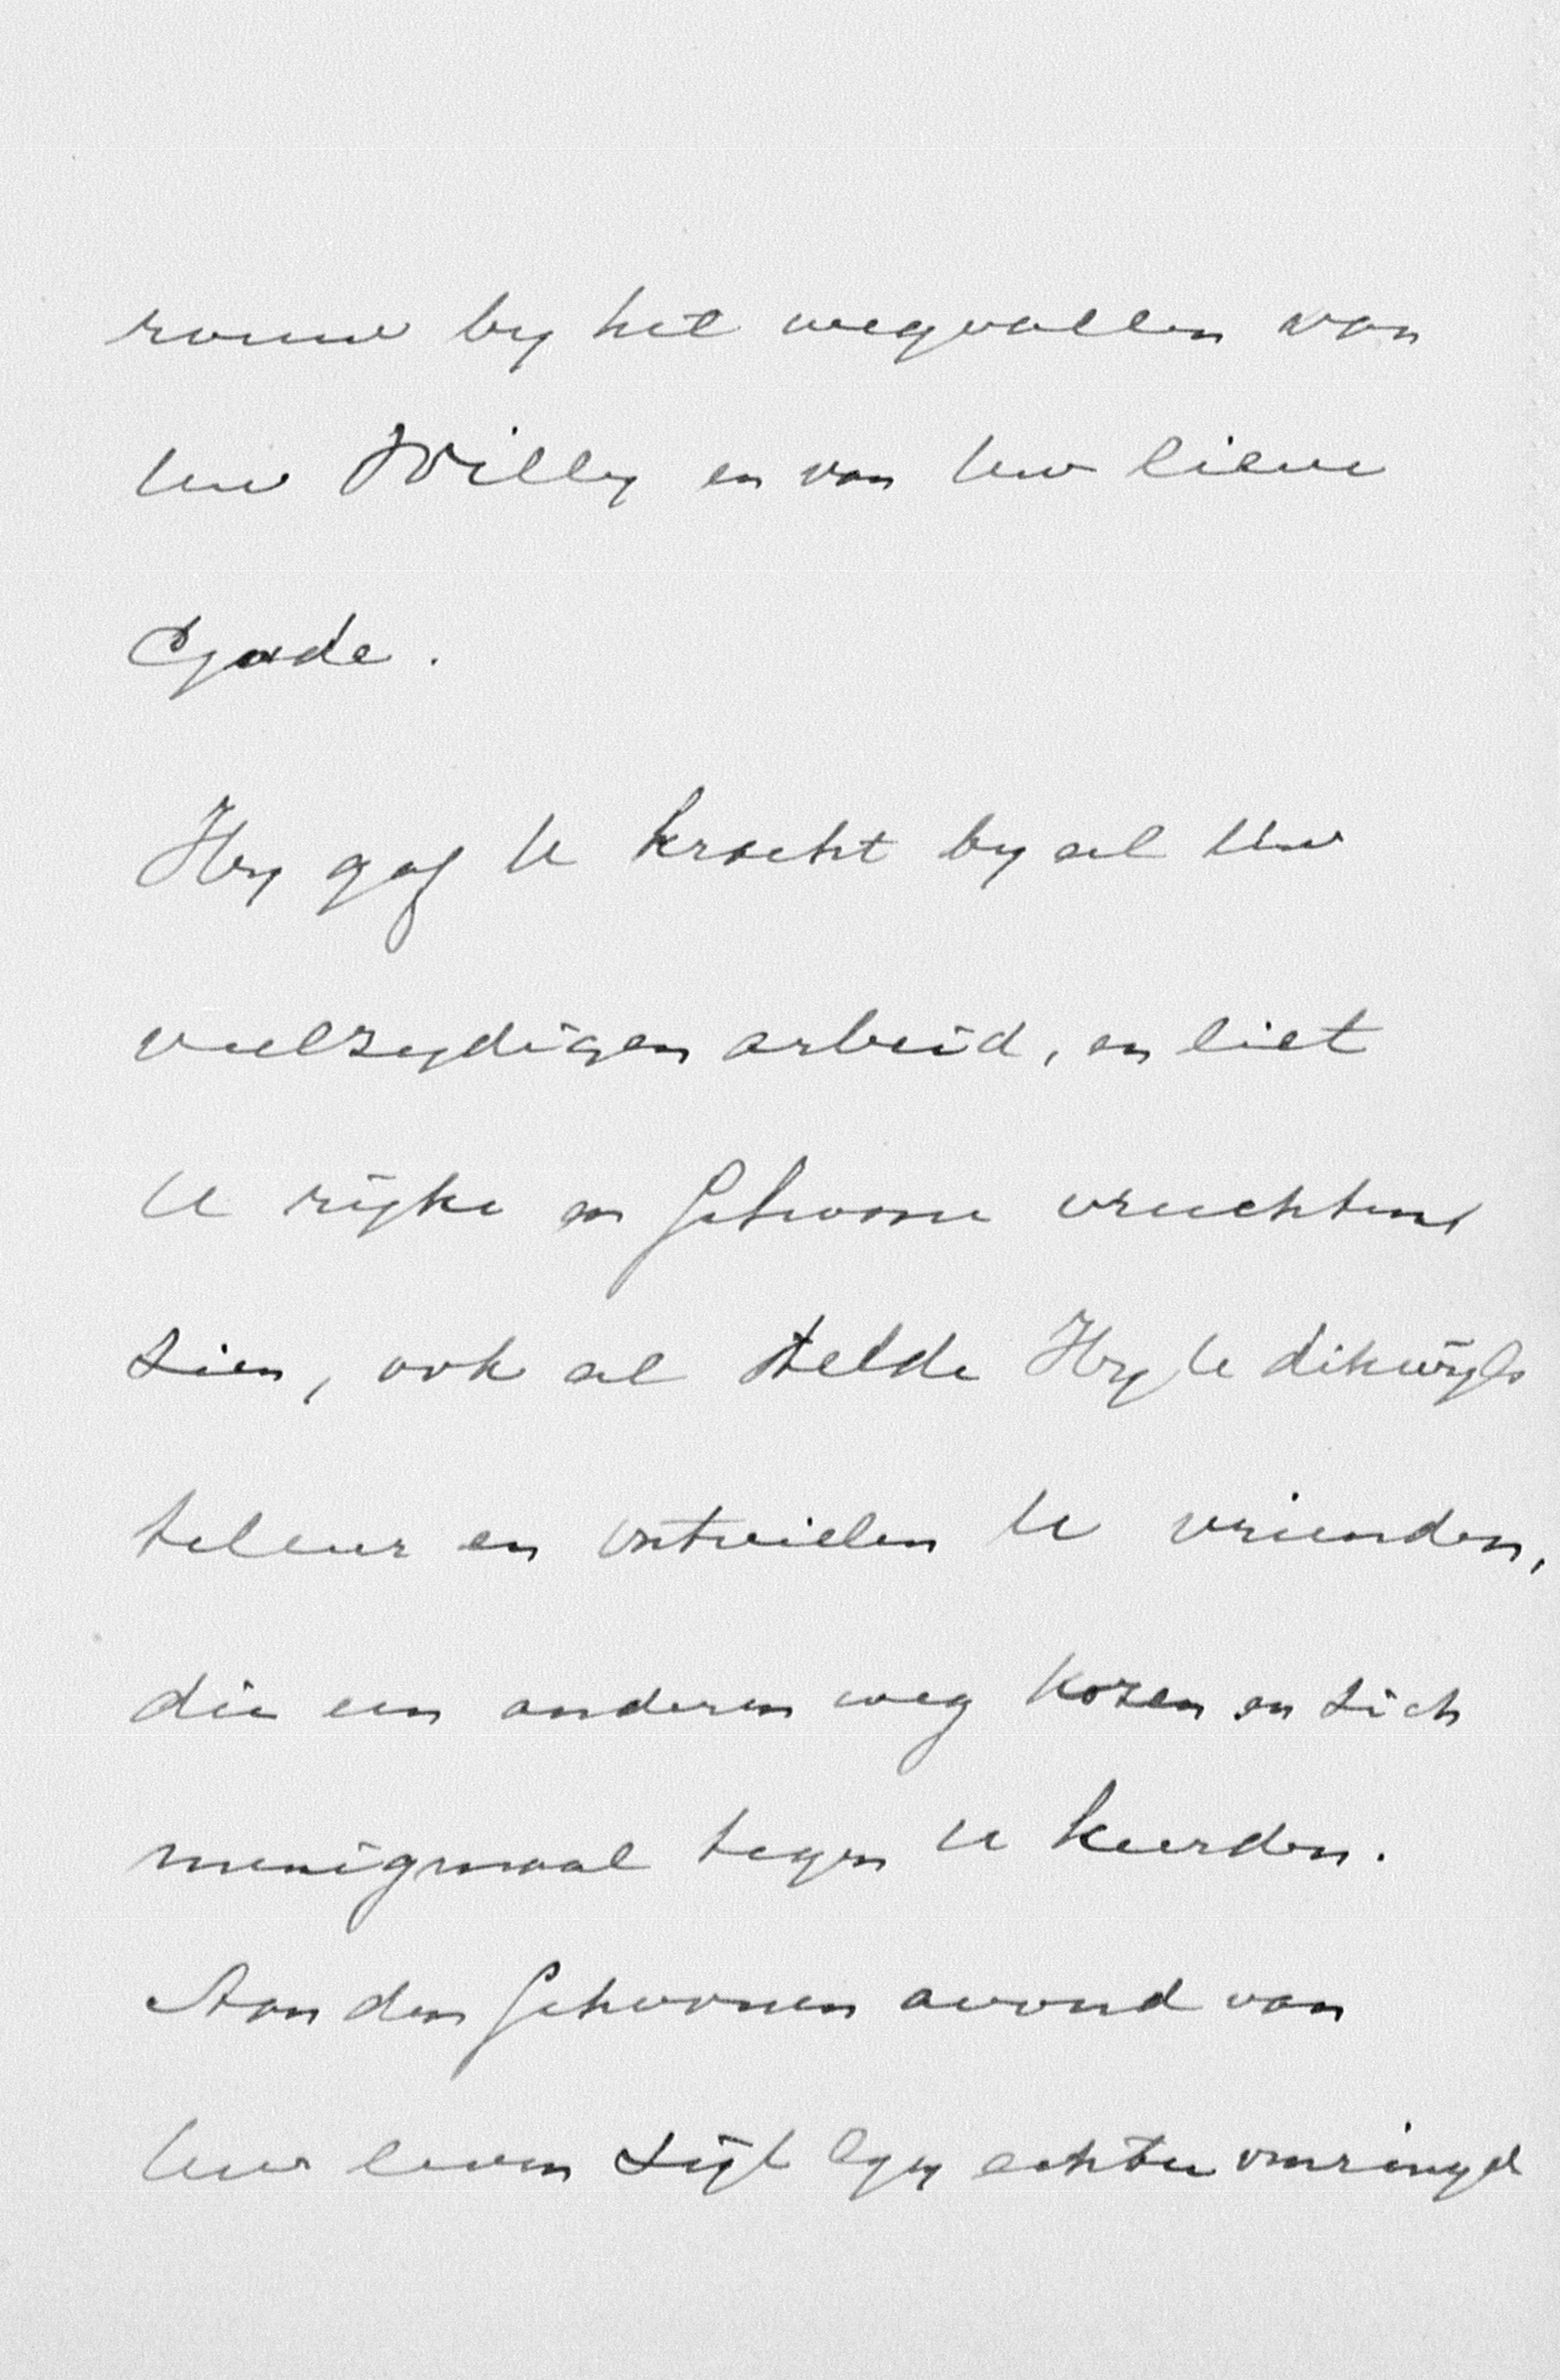 rouw by het wegvallen van
Uw Willy en van Uw lieve
Gade.
Hy gaf U kracht by al Uw
veelzydigen arbeid, en liet
U rijke en schoone vruchten
zien, ook al stelde Hy U dikwijls
teleur en ontvielen U vrienden,
die een anderen weg kozen en zich
menigmaal tegen U keerden.
Aan den schoonen avond van
Uw leven zijt Gy echter omringd